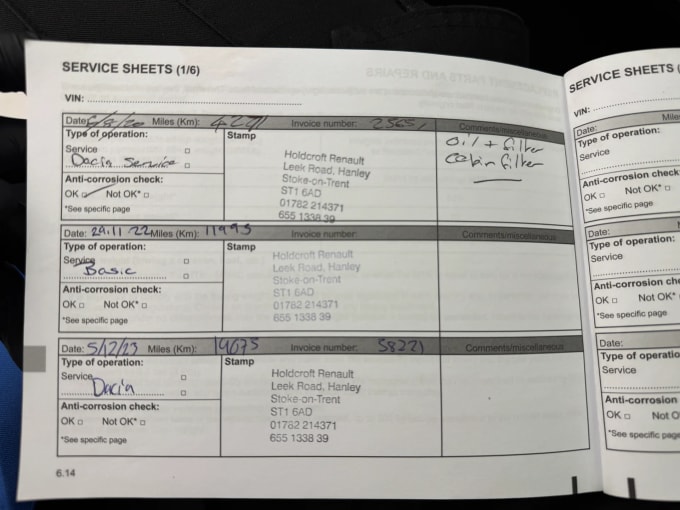 SERVICE SHEETS (1/6)
VIN:
Date: Miles (Km): Invoice number: Comments/miscellaneous
Type of operation:
Stamp
Service
Dacia Service
Anti-corrosion check:
OK Not OK*
*See specific page
Holdcroft Renault
Leek Road, Hanley
Stoke-on-Trent
ST1 6AD
01782 214371
655 1338 39
oil + filter
cabin filter
Date: 29.11 22 Miles (Km): 11993 Invoice number: Comments/miscellaneous
Type of operation:
Stamp
Service
Basic
Anti-corrosion check:
OK Not OK*
*See specific page
Holdcroft Renault
Leek Road, Hanley
Stoke-on-Trent
ST1 6AD
01782 214371
655 1338 39
Date: 5/12/23 Miles (Km): 14075 Invoice number: 58221 Comments/miscellaneous
Type of operation:
Stamp
Service
Dacia
Anti-corrosion check:
OK Not OK*
*See specific page
Holdcroft Renault
Leek Road, Hanley
Stoke-on-Trent
ST1 6AD
01782 214371
655 1338 39
6.14
SERVICE SHEETS
VIN:
Date:
Type of operation:
Service
Anti-corrosion check:
OK Not OK*
*See specific page
Date:
Type of operation:
Service
Anti-corrosion
OK Not OK*
*See specific page
Date:
Type of
Service
Anti-corrosion
OK Not
*See specific page